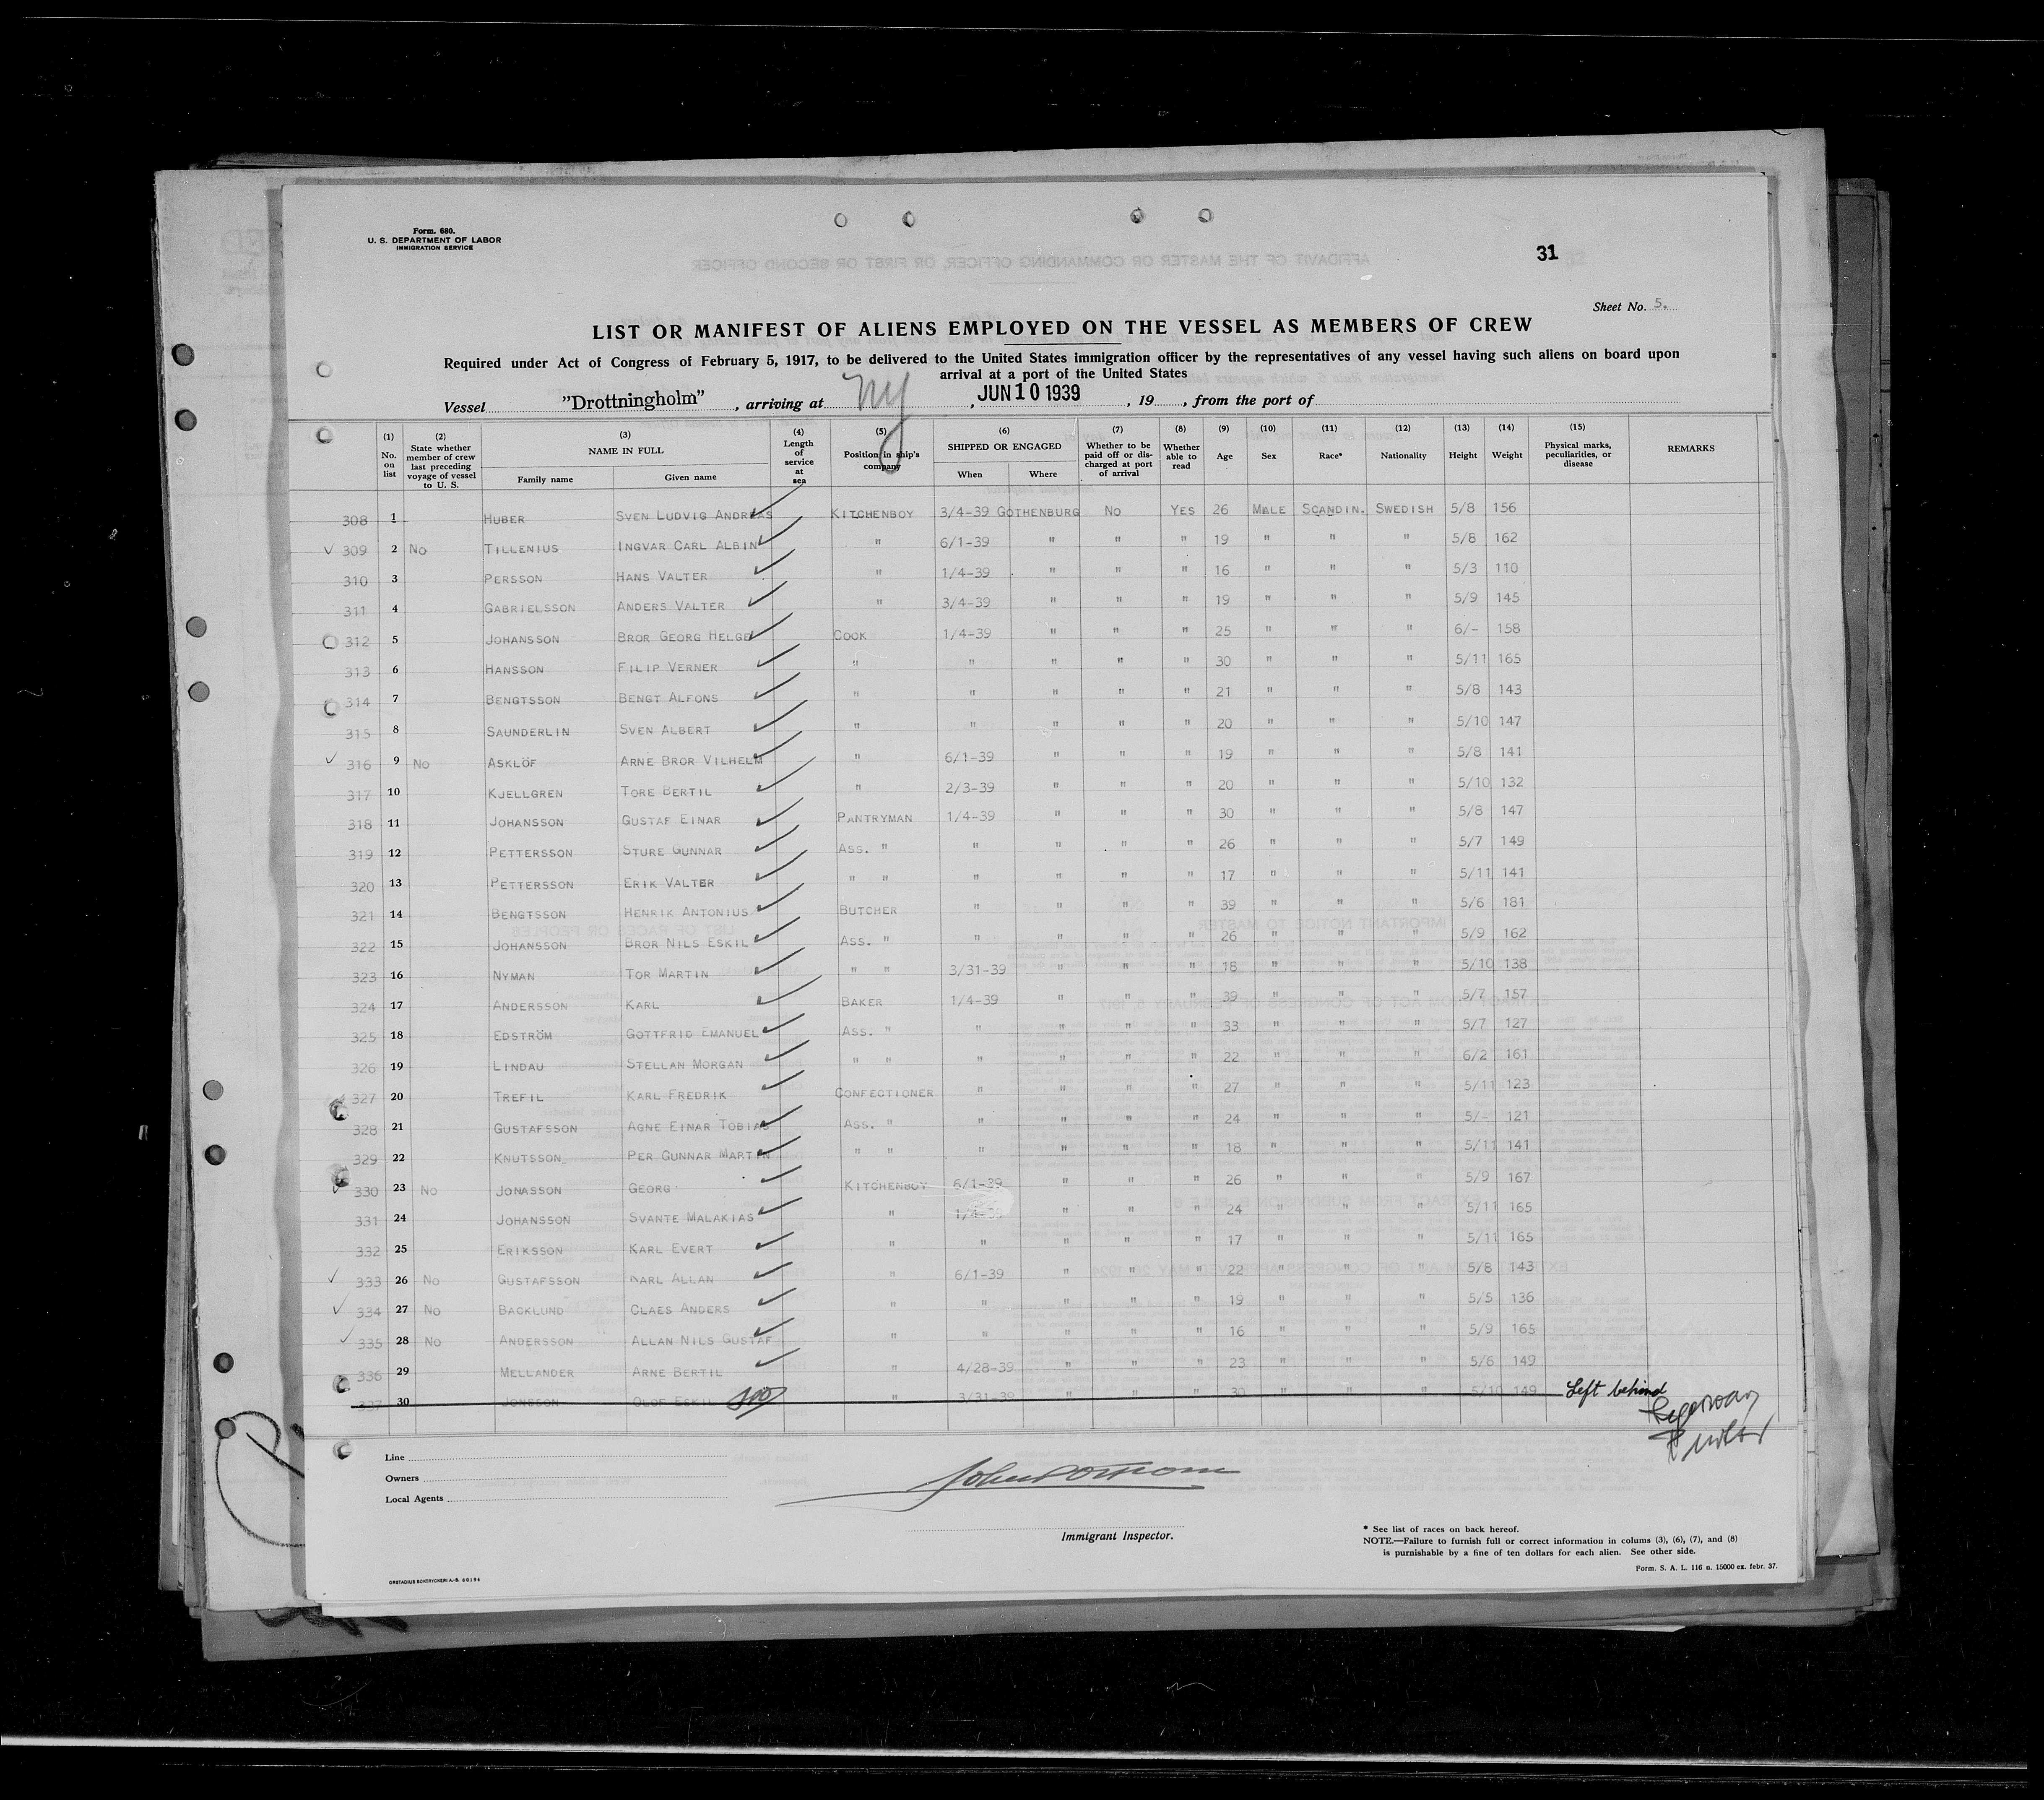 Form. 680.
U. S. DEPARTMENT OF LABOR
IMMIGRATION SERVICE
31
Sheet No. 5.
LIST OR MANIFEST OF ALIENS EMPLOYED ON THE VESSEL AS MEMBERS OF CREW
Required under Act of Congress of February 5, 1917, to be delivered to the United States immigration officer by the representatives of any vessel having such aliens on board upon
arrival at a port of the United States
Vessel "Drottningholm", arriving at NY, JUN 10 1939, 19, from the port of
(1) No. on list (2) State whether member of crew last preceding voyage of vessel to U. S. (3) NAME IN FULL Family name Given name (4) Length of service at sea (5) Position in ship's company (6) SHIPPED OR ENGAGED When Where (7) Whether to be paid off or discharged at port of arrival (8) Whether able to read (9) Age (10) Sex (11) Race* (12) Nationality (13) Height (14) Weight (15) Physical marks, peculiarities, or disease REMARKS
308 1 HUBER SVEN LUDVIG ANDREAS KITCHENBOY 3/4-39 GOTHENBURG NO YES 26 MALE SCANDIN. SWEDISH 5/8 156
309 2 NO TILLENIUS INGVAR CARL ALBIN " 6/1-39 " " " 19 " " " 5/8 162
310 3 PERSSON HANS VALTER " 1/4-39 " " " 16 " " " 5/3 110
311 4 GABRIELSSON ANDERS VALTER " 3/4-39 " " " 19 " " " 5/9 145
312 5 JOHANSSON BROR GEORG HELGE COOK 1/4-39 " " " 25 " " " 6/- 158
313 6 HANSSON FILIP VERNER " " " " " 30 " " " 5/11 165
314 7 BENGTSSON BENGT ALFONS " " " " " 21 " " " 5/8 143
315 8 SAUNDERLIN SVEN ALBERT " " " " " 20 " " " 5/10 147
316 9 NO ASKLÖF ARNE BROR VILHELM " 6/1-39 " " " 19 " " " 5/8 141
317 10 KJELLGREN TORE BERTIL " 2/3-39 " " " 20 " " " 5/10 132
318 11 JOHANSSON GUSTAF EINAR PANTRYMAN 1/4-39 " " " 30 " " " 5/8 147
319 12 PETTERSSON STURE GUNNAR ASS. " " " " " 26 " " " 5/7 149
320 13 PETTERSSON ERIK VALTER " " " " " " 17 " " " 5/11 141
321 14 BENGTSSON HENRIK ANTONIUS BUTCHER " " " " 39 " " " 5/6 181
322 15 JOHANSSON BROR NILS ESKIL ASS. " " " " " 26 " " " 5/9 162
323 16 NYMAN TOR MARTIN " " 3/31-39 " " " 18 " " " 5/10 138
324 17 ANDERSSON KARL BAKER 1/4-39 " " " 39 " " " 5/7 157
325 18 EDSTRÖM GOTTFRID EMANUEL ASS. " " " " " 33 " " " 5/7 127
326 19 LINDAU STELLAN MORGAN " " " " " " 22 " " " 6/2 161
327 20 TREFIL KARL FREDRIK CONFECTIONER " " " " 27 " " " 5/11 123
328 21 GUSTAFSSON AGNE EINAR TOBIAS ASS. " " " " " 24 " " " 5/- 121
329 22 KNUTSSON PER GUNNAR MARTIN " " " " " " 18 " " " 5/11 141
330 23 NO JONASSON GEORG KITCHENBOY 6/1-39 " " " 26 " " " 5/9 167
331 24 JOHANSSON SVANTE MALAKIAS " 1/4-39 " " " 24 " " " 5/11 165
332 25 ERIKSSON KARL EVERT " " " " " 17 " " " 5/11 165
333 26 NO GUSTAFSSON KARL ALLAN " 6/1-39 " " " 22 " " " 5/8 143
334 27 NO BACKLUND CLAES ANDERS " " " " " 19 " " " 5/5 136
335 28 NO ANDERSSON ALLAN NILS GUSTAF " " " " " 16 " " " 5/9 165
336 29 MELLANDER ARNE BERTIL " 4/28-39 " " " 23 " " " 5/6 149
337 30 JONSSON OLOF ESKIL " 3/31-39 " " " 30 " " " 5/10 149 Left behind
Line
Owners
Local Agents
Immigrant Inspector.
* See list of races on back hereof.
NOTE.—Failure to furnish full or correct information in colums (3), (6), (7), and (8)
is punishable by a fine of ten dollars for each alien. See other side.
Form. S. A. L. 116 a. 15000 ex. febr. 37.